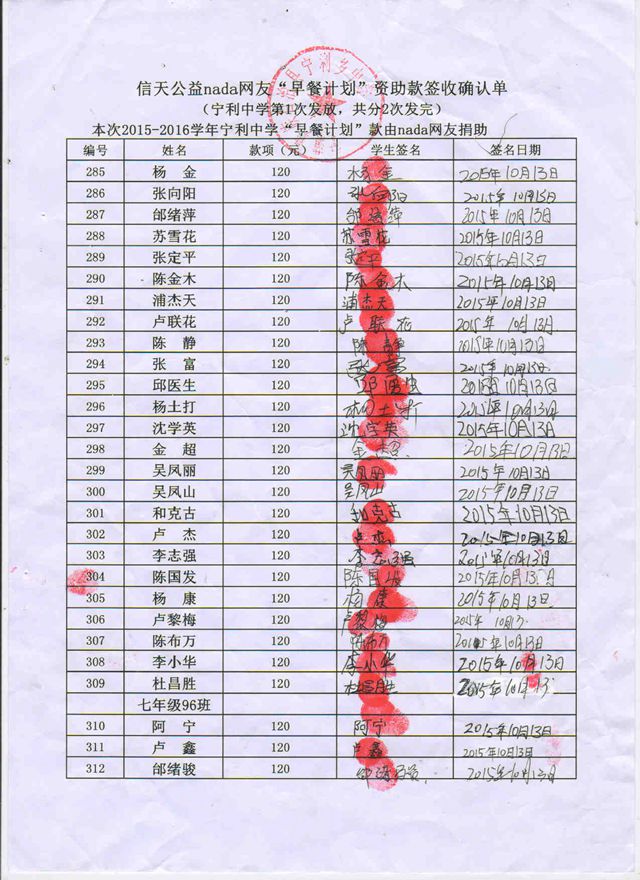 信天公益nada网友“早餐计划”资助款签收确认单
（宁利中学第1次发放，共分2次发完）
本次2015-2016学年宁利中学“早餐计划”款由nada网友捐助
编号 姓名 款项（元） 学生签名 签名日期
285 杨金 120 2015年10月13日
286 张向阳 120 张向阳 2015年10月13日
287 邰绪萍 120 邰绪萍 2015年10月13日
288 苏雪花 120 苏雪花 2015年10月13日
289 张定平 120 张定平 2015年10月13日
290 陈金木 120 陈金木 2015年10月13日
291 浦杰天 120 浦杰天 2015年10月13日
292 卢联花 120 卢联花 2015年10月13日
293 陈静 120 陈静 2015年10月13日
294 张富 120 张富 2015年10月13日
295 邱医生 120 邱医生 2015年10月13日
296 杨土打 120 杨土打 2015年10月13日
297 沈学英 120 沈学英 2015年10月13日
298 金超 120 金超 2015年10月13日
299 吴凤丽 120 吴凤丽 2015年10月13日
300 吴凤山 120 吴凤山 2015年10月13日
301 和克古 120 和克古 2015年10月13日
302 卢杰 120 卢杰 2015年10月13日
303 李志强 120 李志强 2015年10月13日
304 陈国发 120 陈国发 2015年10月13日
305 杨康 120 杨康 2015年10月13日
306 卢黎梅 120 卢黎梅 2015年
307 陈布万 120 陈布万 2015年10月13日
308 李小华 120 李小华 2015年10月13日
309 杜昌胜 120 杜昌胜 2015年10月13
七年级96班
310 阿宁 120 阿宁 2015年10月13日
311 卢鑫 120 卢鑫 2015年10月13日
312 邰绪骏 120 2015年10月13日